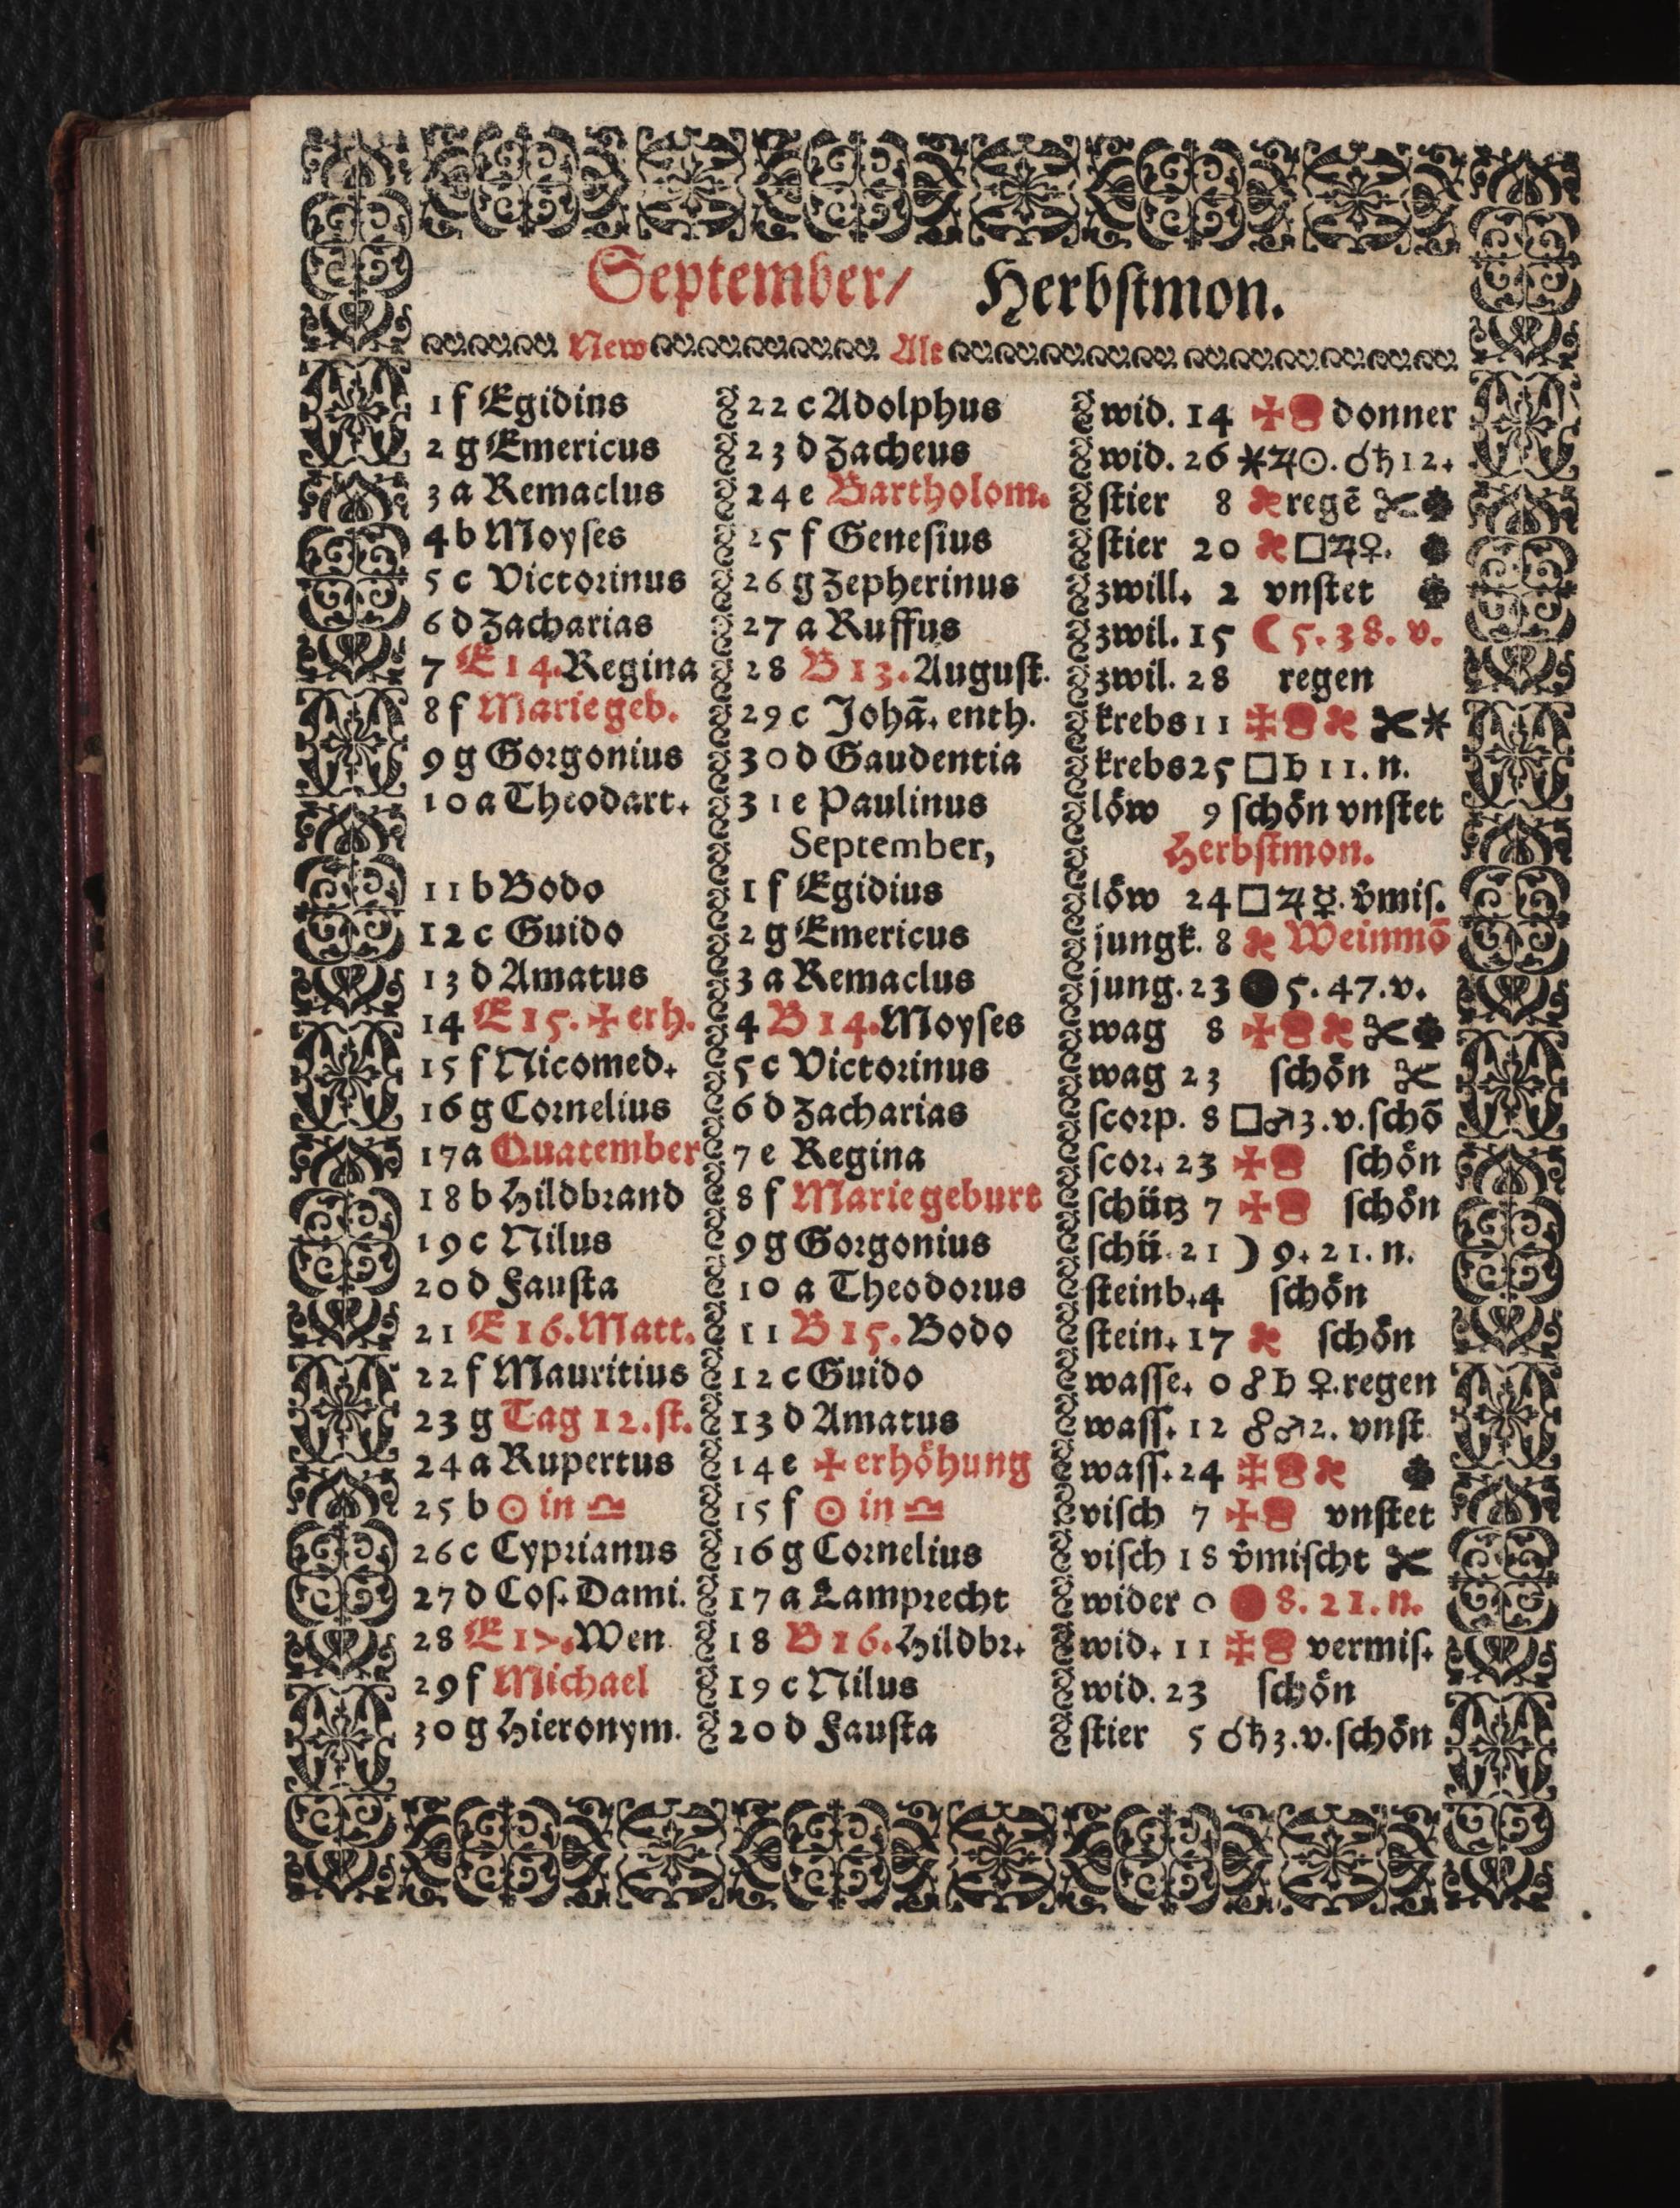 September/ Herbſtmon.
New Alt
1 f Egidius 22 c Adolphus wid. 14 ✠ donner
2 g Emericus 23 d Zacheus wid. 26 ⚹♃☉. ☌♄ 12.
3 a Remaclus 24 e Bartholom. ſtier 8 regẽ ✂
4 b Moyſes 25 f Geneſius ſtier 20 □♃♀.
5 c Victorinus 26 g Zepherinus zwill. 2 vnſtet
6 d Zacharias 27 a Ruffus zwil. 15 ☾ 5. 38. v.
7 E 14. Regina 28 B 13. Auguſt. zwil. 28 regen
8 f Marie geb. 29 c Johã. enth. krebs 11 ✠ ✂ ⚹
9 g Gorgonius 30 d Gaudentia krebs 25 □ ♄ 11. n.
10 a Theodart. 31 e Paulinus löw 9 ſchön vnſtet
September, Herbſtmon.
11 b Bodo 1 f Egidius löw 24 □ ♃ ☿. v̊miſ.
12 c Guido 2 g Emericus jungk. 8 Weinmõ
13 d Amatus 3 a Remaclus jung. 23 ● 5. 47. v.
14 E 15. ✠ erh. 4 B 14. Moyſes wag 8 ✠ ✂
15 f Nicomed. 5 c Victorinus wag 23 ſchön ✂
16 g Cornelius 6 d Zacharias ſcorp. 8 □♂ 3. v. ſchõ
17 a Quatember 7 e Regina ſcor. 23 ✠ ſchön
18 b Hildbrand 8 f Marie geburt ſchütz 7 ✠ ſchön
19 c Nilus 9 g Gorgonius ſchü. 21 ☽ 9. 21. n.
20 d Fauſta 10 a Theodorus ſteinb. 4 ſchön
21 E 16. Matt. 11 B 15. Bodo ſtein. 17 ſchön
22 f Mauritius 12 c Guido waſſe. 0 ☍ ♄ ♀. regen
23 g Tag 12. ſt. 13 d Amatus waſſ. 12 ☍♂ 2. vnſt
24 a Rupertus 14 e ✠ erhöhung waſſ. 24 ✠
25 b ☉ in ♎ 15 f ☉ in ♎ viſch 7 ✠ vnſtet
26 c Cyprianus 16 g Cornelius viſch 18 v̊miſcht ✂
27 d Coſ. Dami. 17 a Lamprecht wider 0 ● 8. 21. n.
28 E 17. Wen 18 B 16. Hildbr. wid. 11 ✠ vermiſ.
29 f Michael 19 c Nilus wid. 23 ſchön
30 g Hieronym. 20 d Fauſta ſtier 5 ☌♄ 3. v. ſchön